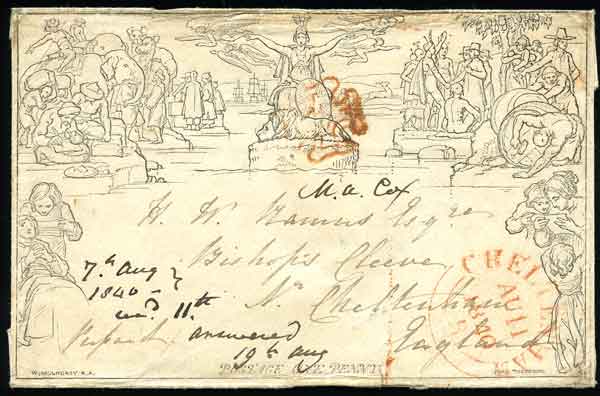 M. A. Cox
H. W. Esqre
Bishop's Cleeve
Nr Cheltenham
England
7th Aug
1840
recd. 11th
answered
19th Aug
POSTAGE ONE PENNY
W. MULREADY R.A.
JOHN THOMPSON
CHELTENHAM
AU 11
1840